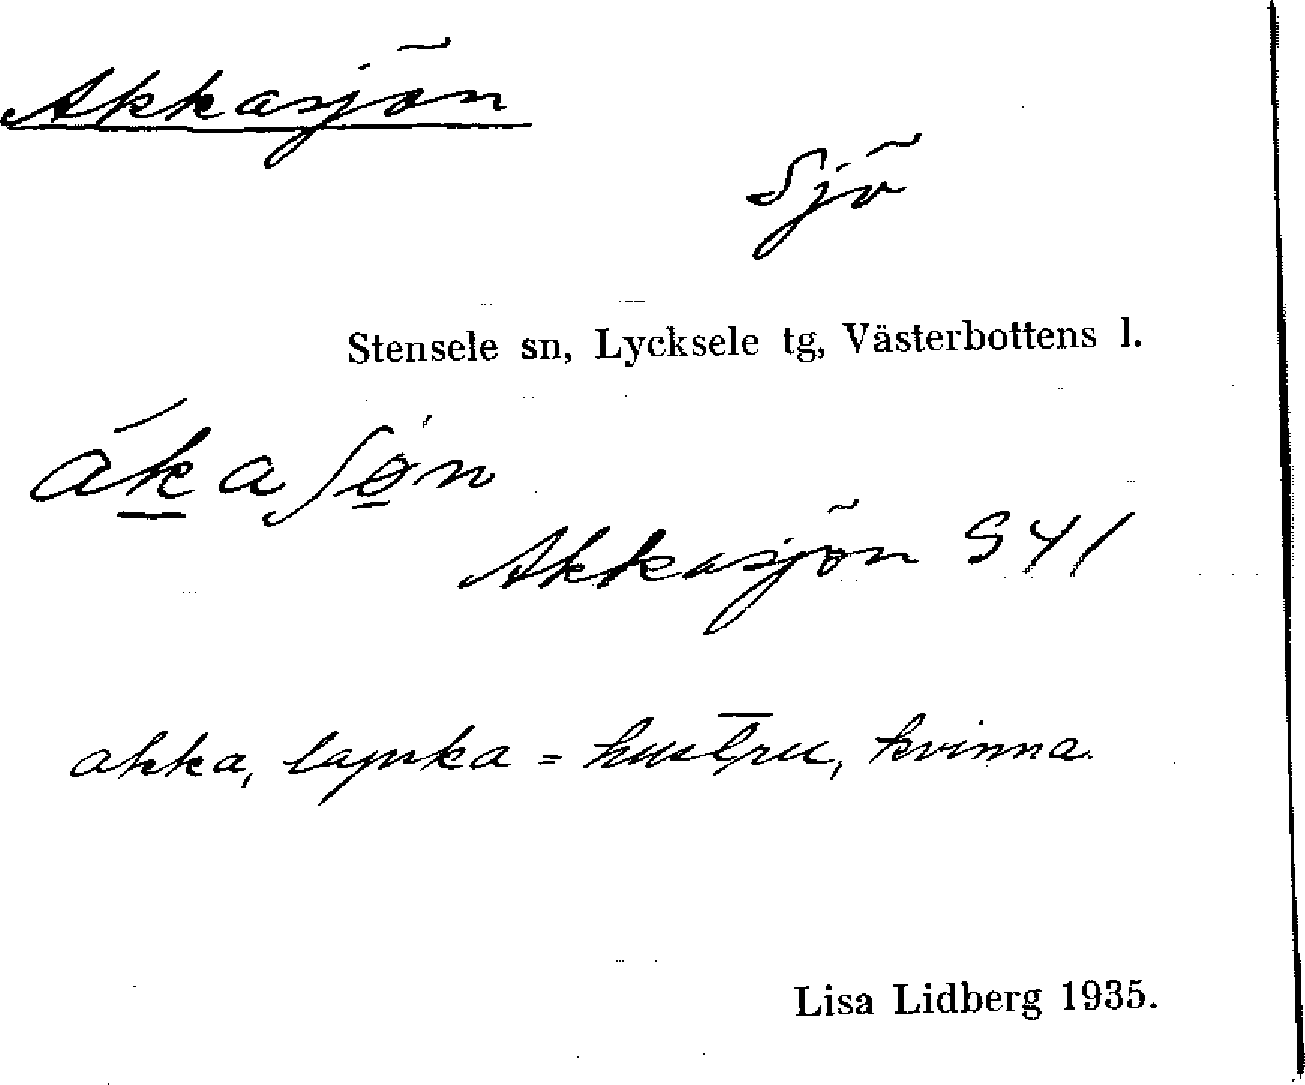 Akkasjön
Sjö
Stensele sn, Lycksele tg, Västerbottens l.
ák̲aʃø̲̀n
Akkasjön S41
akka, lapska = hustru, kvinna.
Lisa Lidberg 1935.